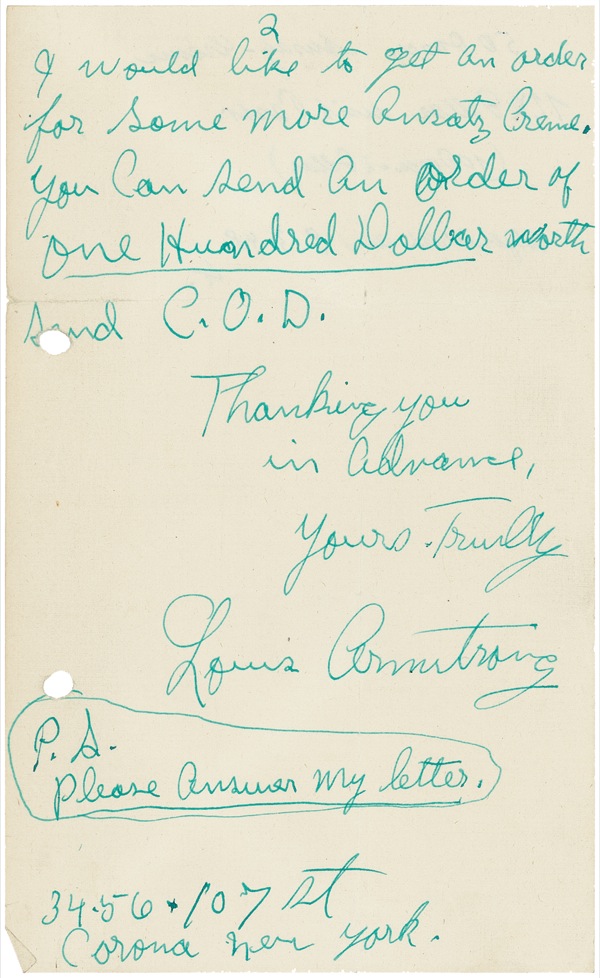 2
I would like to get an order
for some more Ansatz Creme.
you Can send an Order of
One Hundred Dollar worth
Send C.O.D.
Thanking you
in advance,
Yours Trully
Louis Armstrong
P.S.
Please answer my letter.
34-56 • 107 St
Corona New York.